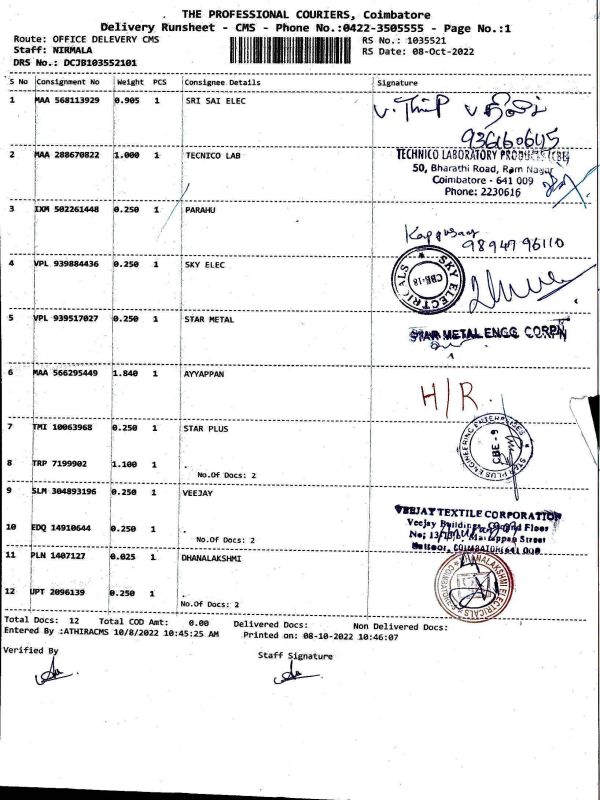 THE PROFESSIONAL COURIERS, Coimbatore
Delivery Runsheet - CMS - Phone No.:0422-3505555 - Page No.:1
Route: OFFICE DELEVERY CMS RS No.: 1035521
Staff: NIRMALA RS Date: 08-Oct-2022
DRS No.: DCJB103552101
S No Consignment No Weight PCS Consignee Details Signature
1 MAA 568113929 0.905 1 SRI SAI ELEC
2 MAA 288670822 1.000 1 TECNICO LAB
TECHNICO LABORATORY PRODUCTS (CBE)
50, Bharathi Road, Ram Nagar
Coimbatore - 641 009
Phone: 2230616
3 IXM 502261448 0.250 1 PARAHU
98947 96110
4 VPL 939884436 0.250 1 SKY ELEC
SKY ELECTRICALS
CBE-18
5 VPL 939517027 0.250 1 STAR METAL
STAR METAL ENGG CORPN
6 MAA 566295449 1.840 1 AYYAPPAN
H/R
7 TMI 10063968 0.250 1 STAR PLUS
STAR PLUS ENGINEERING ENTERPRISES
CBE - 9
8 TRP 7199902 1.100 1
No.Of Docs: 2
9 SLM 304893196 0.250 1 VEEJAY
VEEJAY TEXTILE CORPORATION
Veejay Building, Ground Floor
Street
10 EDQ 14910644 0.250 1
No.Of Docs: 2
COIMBATORE 641 009
11 PLN 1407127 0.025 1 DHANALAKSHMI
DHANALAKSHMI ELECTRICALS
12 UPT 2096139 0.250 1
No.Of Docs: 2
Total Docs: 12 Total COD Amt: 0.00 Delivered Docs: Non Delivered Docs:
Entered By :ATHIRACMS 10/8/2022 10:45:25 AM Printed on: 08-10-2022 10:46:07
Verified By Staff Signature